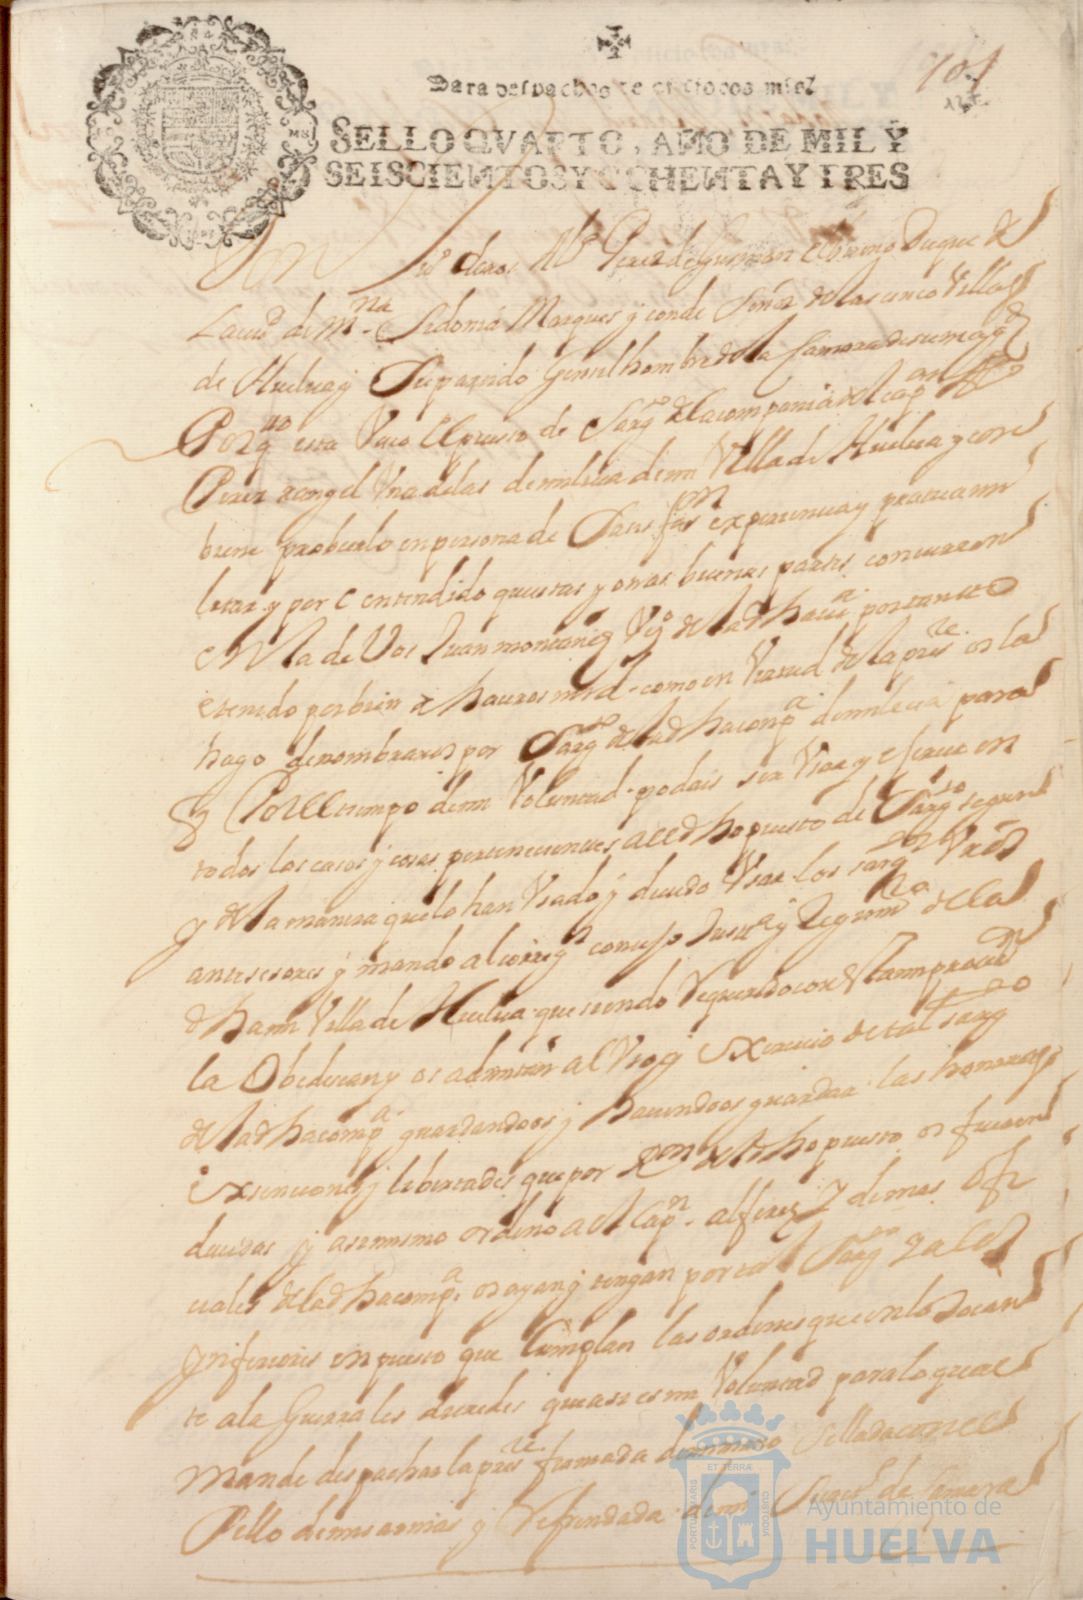 Para despachos de oficio dos mrs.
SELLO QVARTO, AÑO DE MIL Y
SEISCIENTOS Y OCHENTA Y TRES
Perez de Guzman el bueno Duque de
La ciud de Mna Sidonia Marques y conde Señor de las cinco Villas
de Huelua y Su partido Gentilhombre de la Camara de su magd
Porqto esta Vaco el puesto de Sargto de la compania del capan
Perez rangel Vna de las de milicia de mi Villa de Huelua y con
biene probeerlo en persona de Satisfaon experiencia y pratica mi
litar y por q entendido questas y otras buenas partes concurren
en la de Vos Juan montañes Vo de la dha Vª por tanto
e tenido por bien de haceros mrd como en Virtud de la prete os la
hago de nombraros por Sargto de la dha compª de milicia para
q Por el tiempo de mi Voluntad podais ser Vsar y ejercer en
todos los casos y cosas pertenecientes al dho puesto de Sargto segun
y de la manera que lo han Vsado y deuido Vsar los sargtos Vros
antesesores y mando al correxr concejo Justª y Regimto de la
dha mi Villa de Huelua que siendo Requeridos con esta mi prouon
la Obedescan y os admitan al Vso y exercicio de tal Sargto
de la dha compª guardandoos y haciendoos guardar las honores
exsenciones y libertades que por Raon del dho puesto os fueren
deuidas y asimismo ordeno al Capn alferez y demas ofi
ciales de la dha compª os ayan y tengan por tal Sargto y a los
Ynferiores en puesto que Cumplan las ordenes que en lo Tocan
te a la Guerra les dieredes que asi es mi Voluntad para lo qual
mande despachar la prete firmada de mi mano Sellada con el
Sello de mis armas y Refrendada de mi Secreto de Camara
PORTUS MARIS
ET TERRA
CUSTODIA
Ayuntamiento de
HUELVA